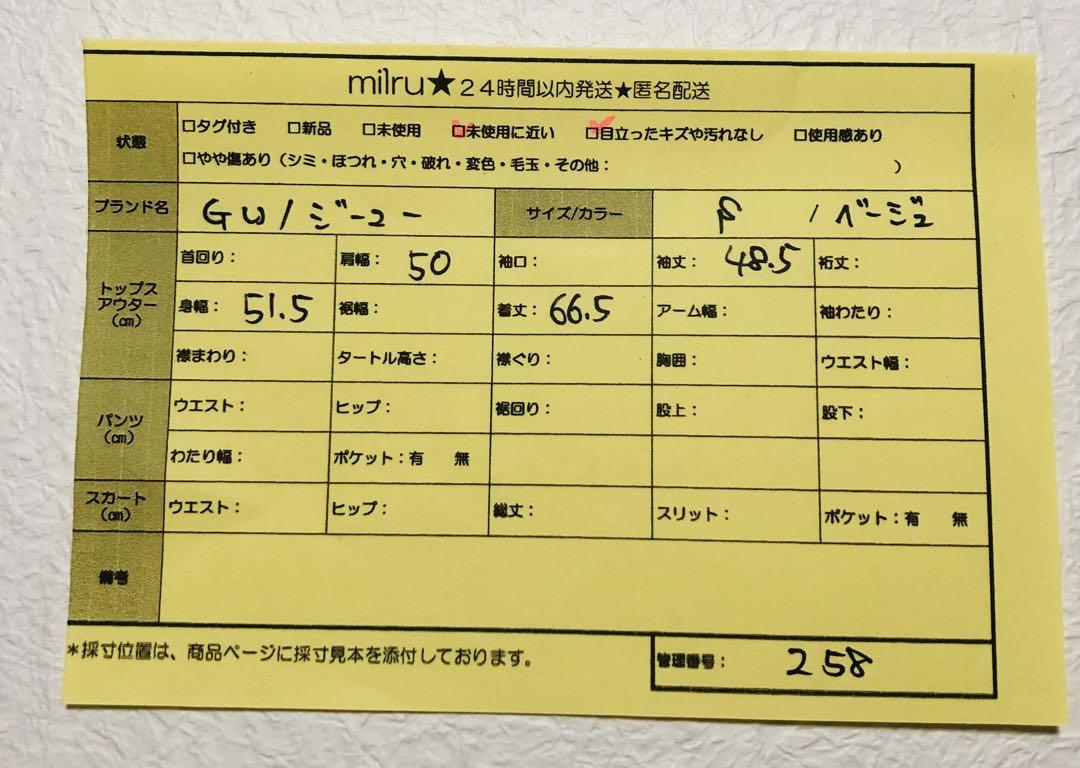 milru★24時間以内発送★匿名配送
状態 □タグ付き □新品 □未使用 □未使用に近い □目立ったキズや汚れなし □使用感あり
□やや傷あり（シミ・ほつれ・穴・破れ・変色・毛玉・その他： ）
ブランド名 GU/ジーユー サイズ/カラー S / ベージュ
トップス
アウター
(㎝)
首回り： 肩幅： 50 袖口： 袖丈： 48.5 裄丈：
身幅： 51.5 裾幅： 着丈： 66.5 アーム幅： 袖わたり：
襟まわり： タートル高さ： 襟ぐり： 胸囲： ウエスト幅：
パンツ
(㎝)
ウエスト： ヒップ： 裾回り： 股上： 股下：
わたり幅： ポケット：有 無
スカート
(㎝)
ウエスト： ヒップ： 総丈： スリット： ポケット：有 無
備考
*採寸位置は、商品ページに採寸見本を添付しております。
管理番号： 258